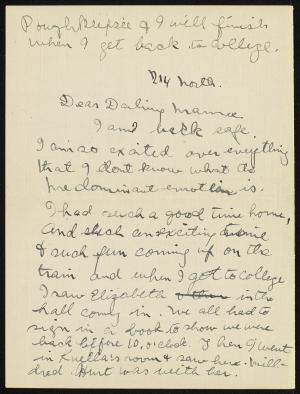 Poughkeepsie & I will finish
when I get back to college.
214 North.
Dear Darling Mamma
I am back safe.
I am so excited over everything
that I dont know what the
predominant emotion is.
I had such a good time home,
and such an exciting
& such fun coming up on the
train and when I got to college
I saw Elizabeth in the
hall coming in. We all had to
sign in a book to show we were
back before 10, o'clock. Then I went
in room & saw here. Mill-
dred. Hurt was with her.